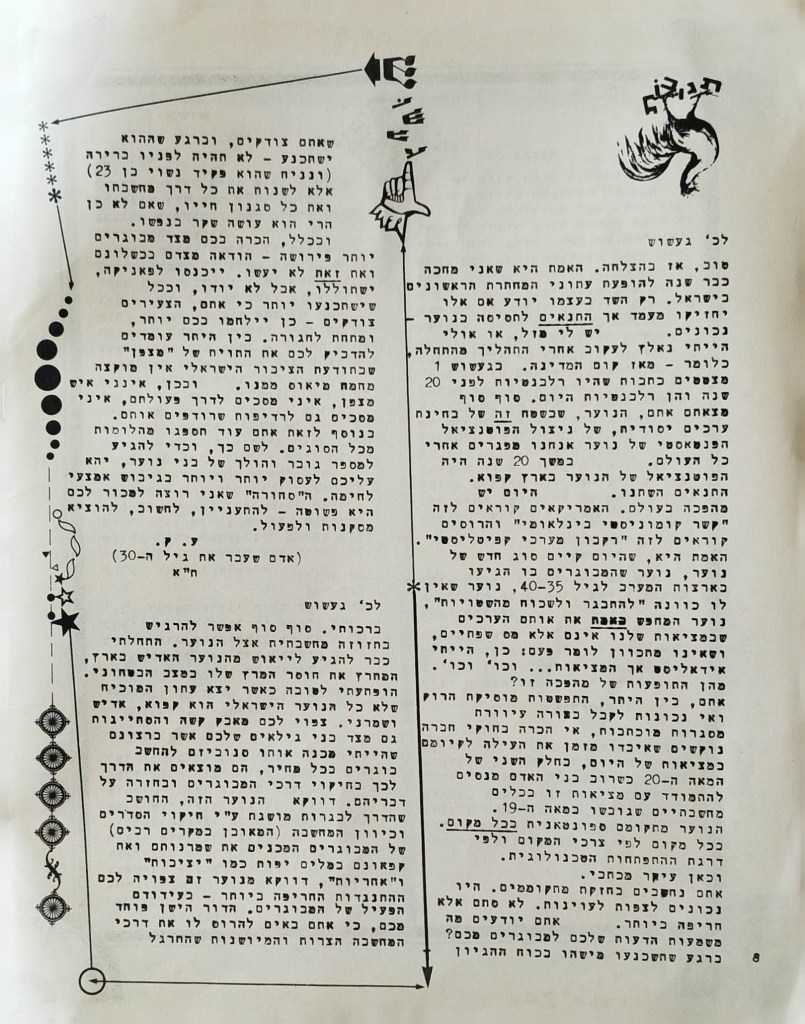 תגובות
לכ' געשוש
טוב, אז בהצלחה. האמת היא שאני מחכה
כבר שנה להופעת עתוני המחתרת הראשונים
בישראל. רק השד בעצמו יודע אם אלו
יחזיקו מעמד אך התנאים לתסיסה בנוער -
נכונים. יש לי מזל, או אולי
הייתי נאלץ לעקוב אחרי התהליך מהתחלה,
כלומר - מאז קום המדינה. בגעשוש 1
מצטטים כתבות שהיו רלבנטיות לפני 20
שנה והן רלבנטיות היום. סוף סוף
מצאתם אתם, הנוער, שבשטח זה של בחינת
ערכים יסודית, של ניצול הפוטנציאל
הפנטאסטי של נוער אנחנו מפגרים אחרי
כל העולם. במשך 20 שנה היה
הפוטנציאל של הנוער בארץ קפוא.
התנאים השתנו. היום יש
מהפכה בעולם. האמריקאים קוראים לזה
"קשר קומוניסטי בינלאומי" והרוסים
קוראים לזה "רקבון מערכי קפיטליסטי".
האמת היא, שהיום קיים סוג חדש של
נוער, נוער שהמבוגרים בו הגיעו
בארצות המערב לגיל 40-35, נוער שאין
לו כוונה "להתבגר ולשכוח מהשטויות",
נוער המחפש באמת את אותם הערכים
שבמציאות שלנו אינם אלא מס שפתיים,
ושאינו מתכוון לומר פעם: כן, הייתי
אידאליסט אך המציאות... וכו' וכו'.
מהן התופעות של מהפכה זו?
אתם, בין היתר, התפשטות מוסיקת הרוק
ואי נכונות לקבל בצורה עיוורת
מסגרות מוכתבות, אי הכרה בחוקי חברה
נוקשים שאיבדו מזמן את העילה לקיומם
במציאות של היום, בחלק השני של
המאה ה-20 כשרוב בני האדם מנסים
להתמודד עם מציאות זו בכלים
מחשבתיים שגובשו במאה ה-19.
הנוער מתקומם ספונטאנית בכל מקום.
בכל מקום לפי צרכי המקום ולפי
דרגת ההתפתחות הטכנולוגית.
וכאן עיקר מכתבי.
אתם נחשבים בחזקת מתקוממים. היו
נכונים לצפות לעוינות. לא סתם אלא
חריפה ביותר. אתם יודעים מה
משמעות הדעות שלכם למבוגרים מכם?
ברגע שתשכנעו מישהו בכוח ההגיון
8
שאתם צודקים, וברגע שההוא
ישתכנע - לא תהיה לפניו ברירה
(ונניח שהוא פקיד נשוי בן 23)
אלא לשנות את כל דרך מחשבתו
ואת כל סגנון חייו, שאם לא כן
הרי הוא עושה שקר בנפשו.
ובכלל, הכרה בכם מצד מבוגרים
יותר פירושה - הודאה מצדם בכשלונם
ואת זאת לא יעשו. ייכנסו לפאניקה,
ישתוללו, אבל לא יודו, וככל
שישתכנעו יותר כי אתם, הצעירים
צודקים - כן יילחמו בכם יותר,
ומתחת לחגורה. בין היתר עומדים
להדביק לכם את התוית של "מצפן"
שבתודעת הציבור הישראלי אין מוקצה
מחמת מיאוס ממנו. ובכן, אינני איש
מצפן, איני מסכים לדרך פעולתם, איני
מסכים גם לרדיפות שרודפים אותם.
בנוסף לזאת אתם עוד תספגו מהלומות
מכל הסוגים. לשם כך, וכדי להגיע
למספר גובר והולך של בני נוער, יהא
עליכם לעסוק יותר ויותר בגיבוש אמצעי
לחימה. ה"סחורה" שאני רוצה למכור לכם
היא פשוטה - להתעניין, לחשוב, להוציא
מסקנות ולפעול.
ע. ק.
(אדם שעבר את גיל ה-30)
ת"א
לכ' געשוש
ברכותי. סוף סוף אפשר להרגיש
בתזוזה מחשבתית אצל הנוער. התחלתי
כבר להגיע לייאוש מהנוער האדיש בארץ,
המתרץ את חוסר המרץ שלו במצב הבטחוני.
הופתעתי לטובה כאשר יצא עתון המוכיח
שלא כל הנוער הישראלי הוא קפוא, אדיש
ושמרני. צפוי לכם מאבק קשה והסתייגות
גם מצד בני גילאים שלכם אשר ברצונם
שהייתי מכנה אותו סנוביזם להחשב
בוגרים בכל מחיר, הם מוצאים את הדרך
לכך בחיקוי דרכי המבוגרים ובחזרה על
דבריהם. דווקא הנוער הזה, החושב
שהדרך לבגרות מושגת ע"י חיקוי הסדרים
וכיוון המחשבה (המאובן במקרים רבים)
של המבוגרים המכנים את שמרנותם ואת
קפאונם במלים יפות כמו "יציבות"
ו"אחריות", דווקא מנוער זה צפויה לכם
ההתנגדות החריפה ביותר - בעידודם
הפעיל של המבוגרים. הדור הישן פוחד
מכם, כי אתם באים להרוס לו את דרכי
המחשבה הצרות והמיושנות שהתרגל